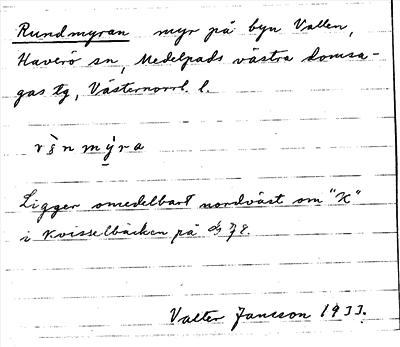 Rundmyran myr på byn Vallen,
Haverö sn, Medelpads västra domsa-
gas tg, Västernorrl. l.
Ligger omedelbart nordväst om "K"
i Kvisselbäcken på
Valter Jansson 1933.